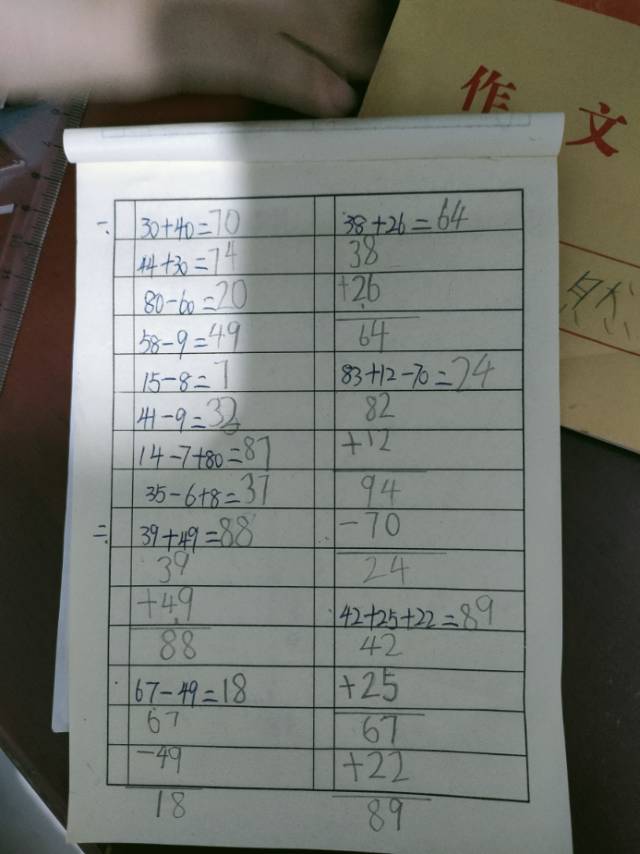 作文
一、 30+40=70
44+30=74
80-60=20
58-9=49
15-8=7
41-9=32
14-7+80=87
35-6+8=37
二、 39+49=88
39
+49
88
67-49=18
67
-49
18
38+26=64
38
+26
64
83+12-70=24
82
+12
94
-70
24
42+25+22=89
42
+25
67
+22
89